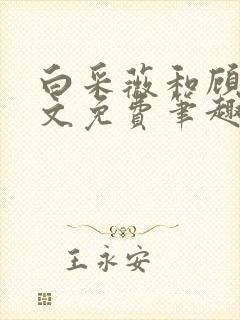 白采薇和顾
文免费笔趣
王永安